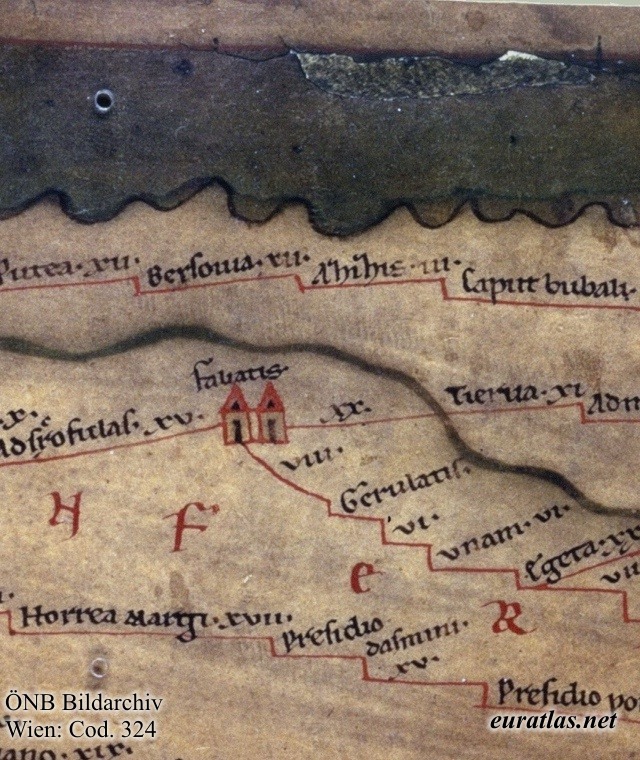 Putea·xii·
Bersovia·xii·
Ahihis·iii·
Caput bubali·
Tabatis·
x·
Adscrofulas·xv·
xx·
Tierva·xi
Adm
viii·
Gerulatis·
vi·
Unam·vi·
Egeta·xx
vii
N F E R
Horrea Margi·xvii·
Presidio
dasmini·
xv·
Presidio po
ano·xix·
ÖNB Bildarchiv
Wien: Cod. 324
euratlas.net